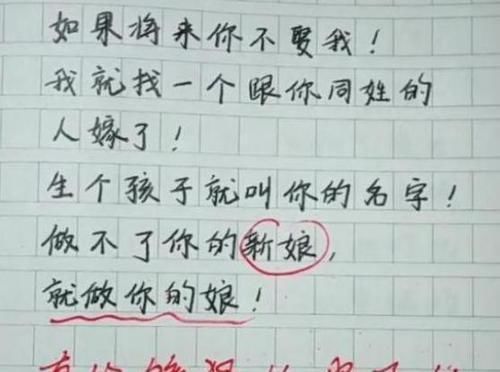 如果将来你不娶我！
我就找一个跟你同姓的
人嫁了！
生个孩子就叫你的名字！
做不了你的新娘，
就做你的娘！